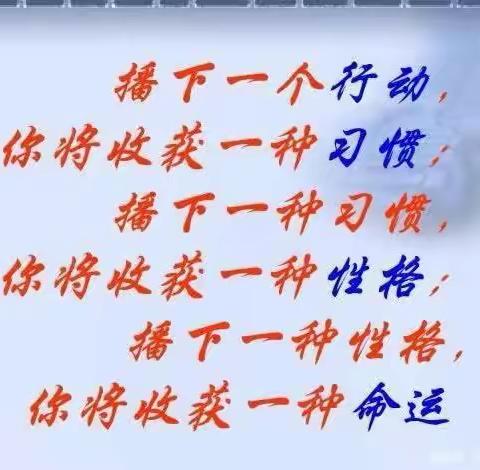 播下一个行动，
你将收获一种习惯；
播下一种习惯，
你将收获一种性格；
播下一种性格，
你将收获一种命运